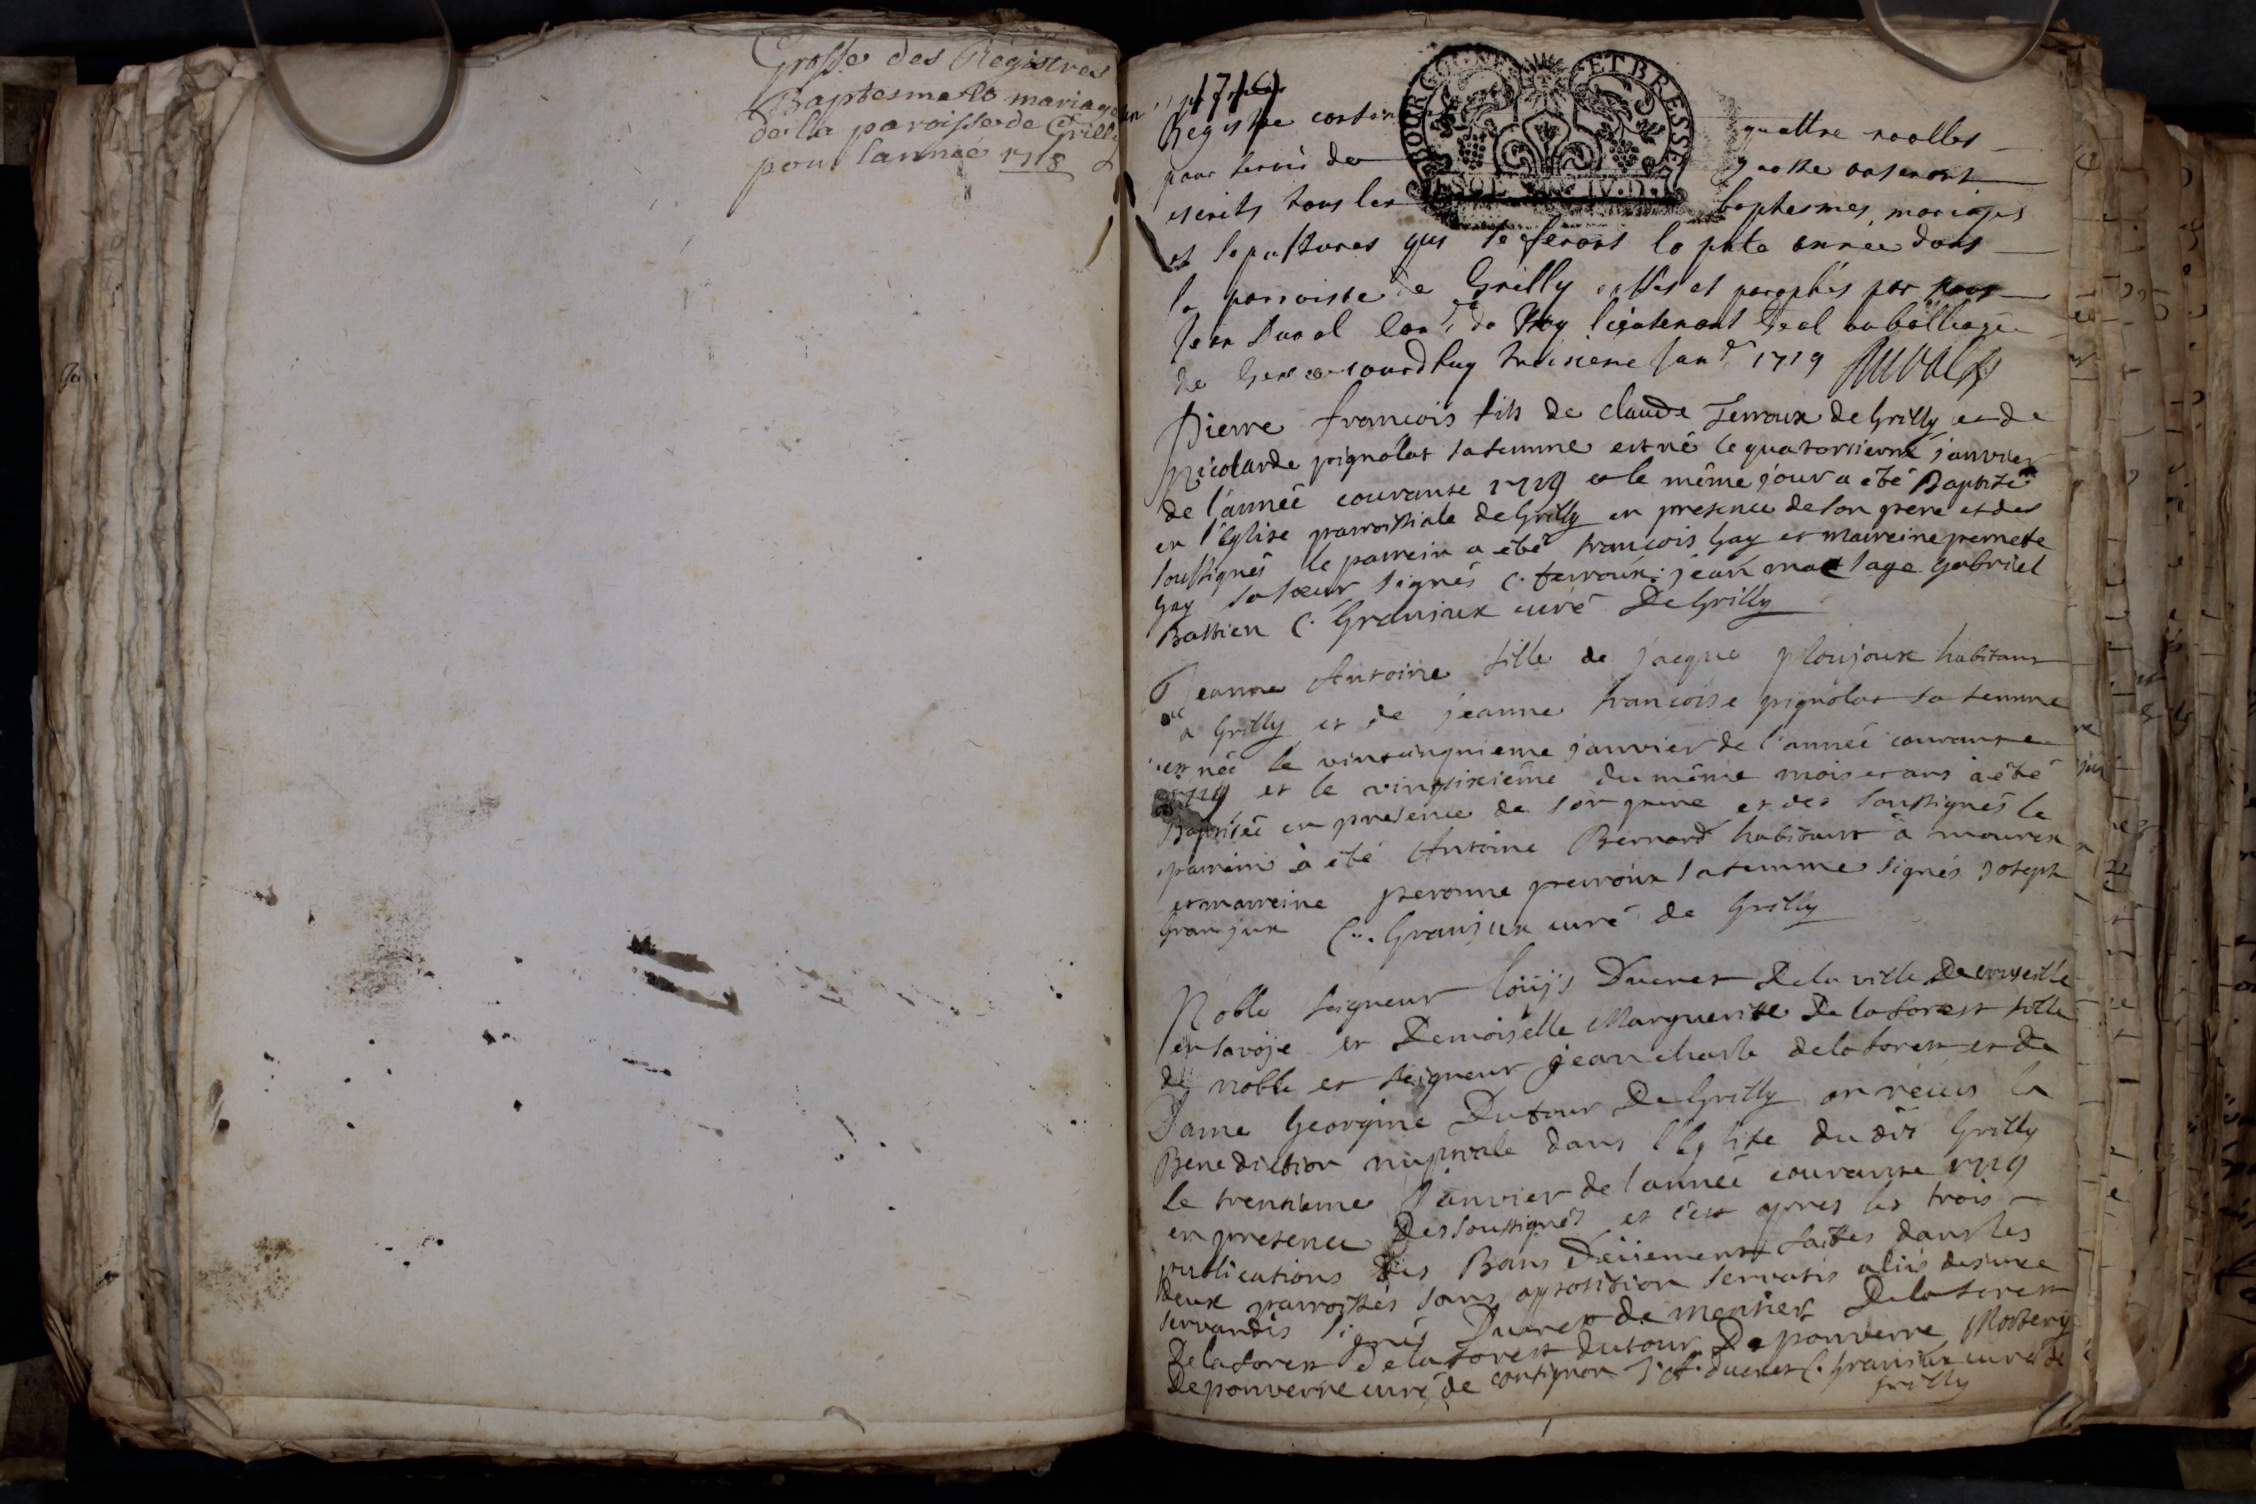 Grosse des Registres
Baptesme & mariage
de la paroisse de Grilly
pour lannée 1718
1719
BOURGOGNE ET BRESSE
Registre conten quattre roolles
pour servir de
escrits tous les baptesmes, mariages
et sepultures qui se feront la pnte année dans
la parroisse de Grilly cottés et paraphés par nous
Jean Duval Con.er du Roy lieutenant Gnal au balliage
de Gex ce jourdhuy troisieme Janr 1719 Duval
Pierre francois fils de claude Terroux de Grilly et de
Nicolarde pignolat sa femme est né le quatorsieme janvier
de l'année courante 1719 et le même jour a été Baptisé
en l'Eglise parroissiale de Grilly en presence de son pere et des
soussignés le parrein a été francois Gay et marreine pernete
Gay sa sœur signés C. terroux. jean mar sage gabriel
Bastien C. Granjux curé De Grilly
Jeanne Antoine fille de jaque ploujoux habitant
a Grilly et de jeanne francoise pignolat sa femme
est née le vintcinquieme janvier de l'année courante
1719 et le vingtsixiême du même mois et ans à été
Baptisée en presence de son pere et des soussignés le
parrein à été Antoine Bernard habitant à mourex
et marreine peronne perroux sa femme signés Joseph
Granjux C. Granjux curé de Grilly
Noble seigneur louijs Ducret De la ville De cruseille
en savoje et Demoiselle Marguerite De la forest fille
de noble et seigneur jean charle de la forest et de
Dame Georgine Dufour De Grilly on receus la
Benediction nuptiale dans l'Eglise du dit Grilly
le trentieme Janvier de l'année courante 1719
en presence Des soussignés et c'est apres les trois
publications Des Bans Deüement faites dans les
deux parroisses sans opposition servatis aliis de jure
servandis signés Ducret de mentier De la forest
De la forest De la forest dufour De ponverre
De ponverre curé de contignon J. A. ducret C. Granjux curé de
Grilly